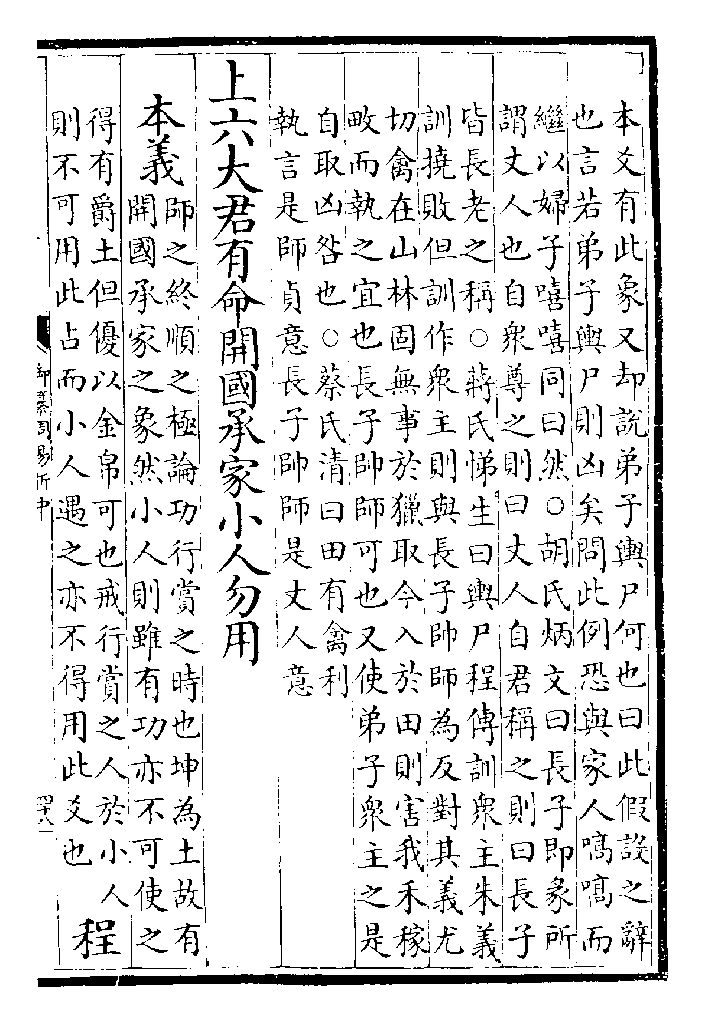 本爻有此象又却說弟子輿尸何也曰此假設之辭
也言若弟子輿尸則凶矣問此例恐與家人嗃嗃而
繼以婦子嘻嘻同曰然○胡氏炳文曰長子即彖所
謂丈人也自衆尊之則曰丈人自君稱之則曰長子
皆長老之稱○蔣氏悌生曰輿尸程傳訓衆主朱義
訓撓敗但訓作衆主則與長子帥師為反對其義尤
切禽在山林固無事於獵取今入於田則害我禾稼
畋而執之宜也長子帥師可也又使弟子衆主之是
自取凶咎也○蔡氏清曰田有禽利
執言是師貞意長子帥師是丈人意
上六大君有命開國承家小人勿用
本義
師之終順之極論功行賞之時也坤為土故有
開國承家之象然小人則雖有功亦不可使之
得有爵土但優以金帛可也戒行賞之人於小人
則不可用此占而小人遇之亦不得用此爻也
程
御纂周易折中